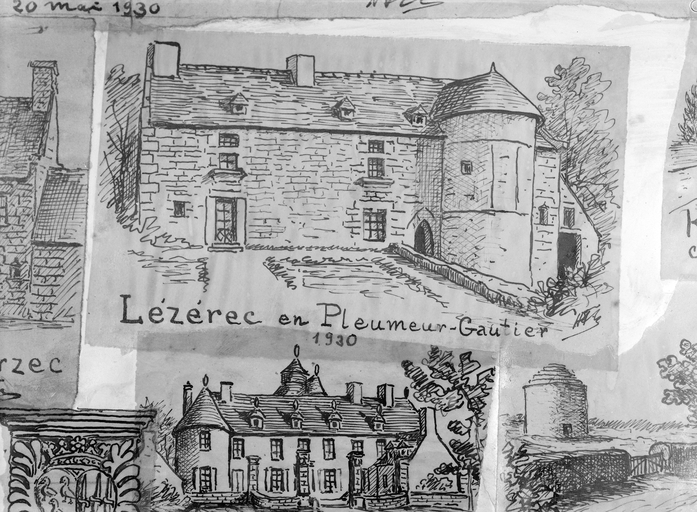 20 mai 1930
Lézérec en Pleumeur-Gautier
1930
rzec